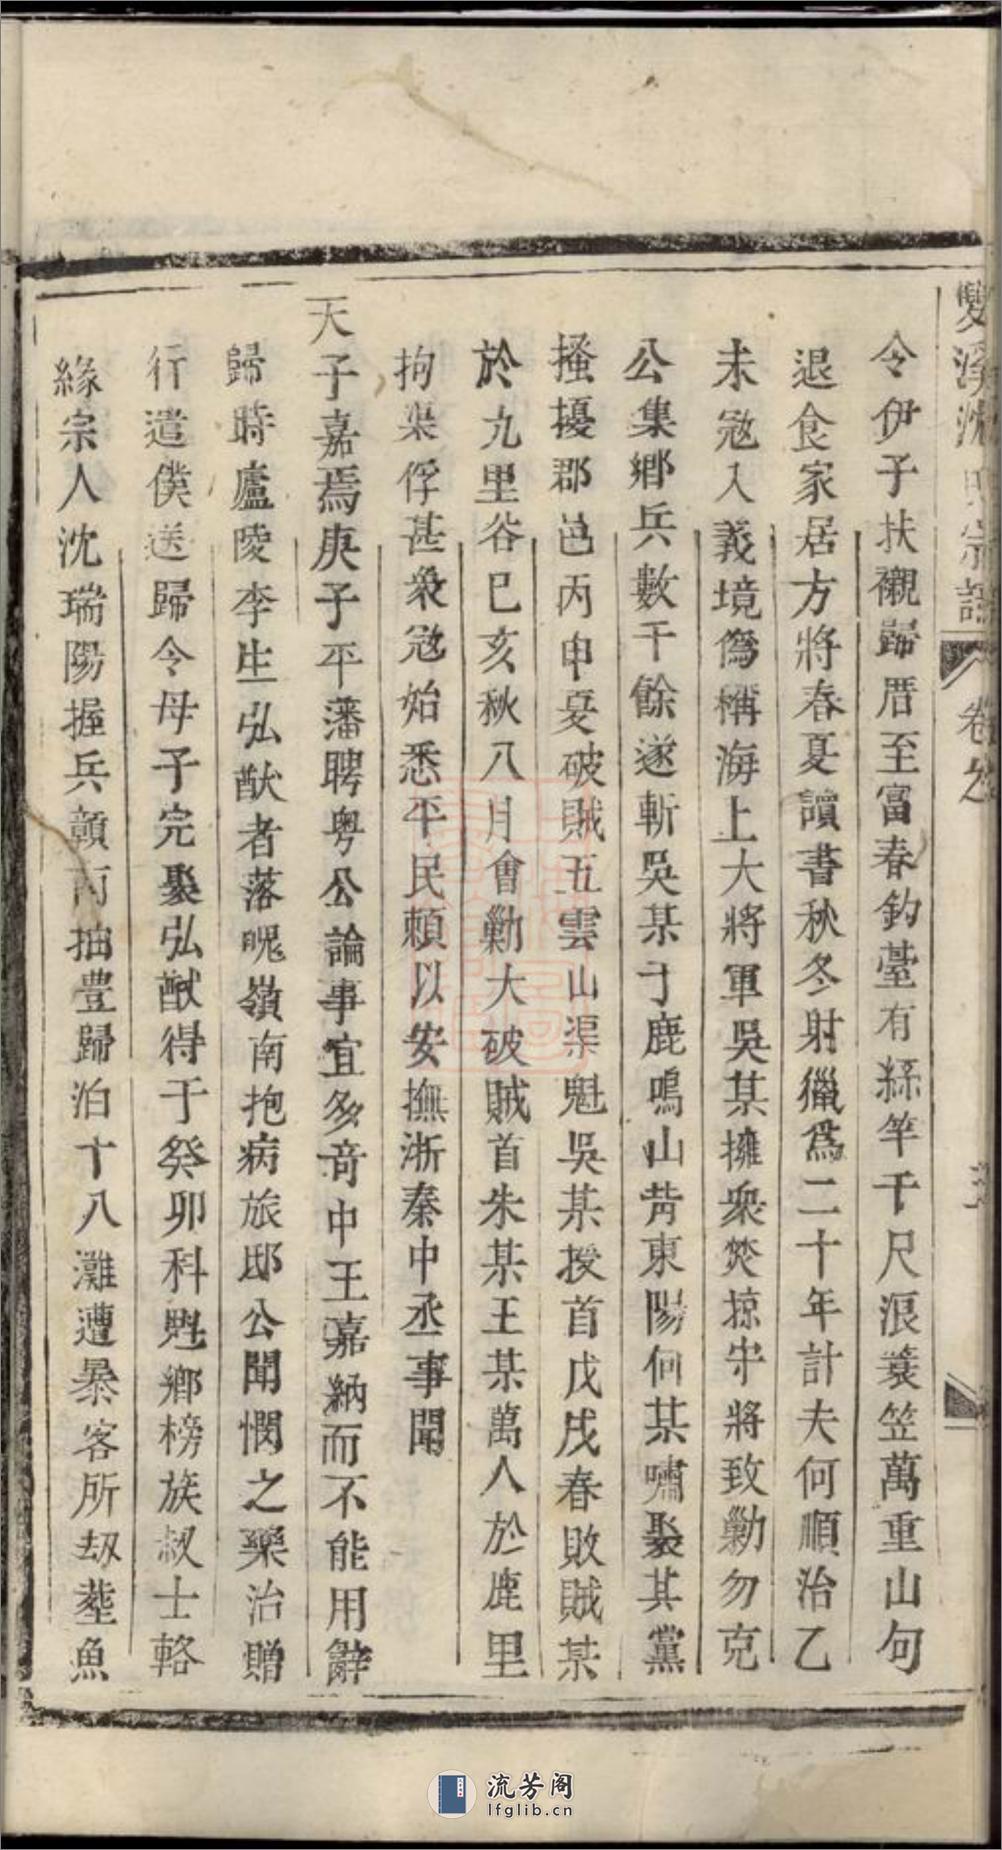 雙溪沈氏宗譜 卷之
令伊子扶襯歸厝至富春釣臺有絲竿千尺浪蓑笠萬重山句
退食家居方將春夏讀書秋冬射獵爲二十年計夫何順治乙
未冦入義境僞稱海上大將軍吳某擁衆焚掠守將致勦勿克
公集鄉兵數千餘遂斬吳某于鹿鳴山背東陽何某嘯聚其黨
搔擾郡邑丙申夏破賊五雲山渠魁吳某授首戊戌春敗賊某
於九里谷巳亥秋八月會勦大破賊首朱某王某萬人於鹿里
拘渠俘甚衆冦始悉平民頼以安撫浙秦中丞事聞
天子嘉焉庚子平藩聘粤公論事宜多竒中王嘉納而不能用辭
歸時廬陵李生弘猷者落魄嶺南抱病旅邸公聞憫之藥治贈
行遣僕送歸令母子完聚弘猷得于癸卯科魁鄉榜族叔士輅
緣宗人沈瑞陽握兵贛丙抽豊歸泊十八灘遭暴客所刼塟魚
流芳阁
lfglib.cn